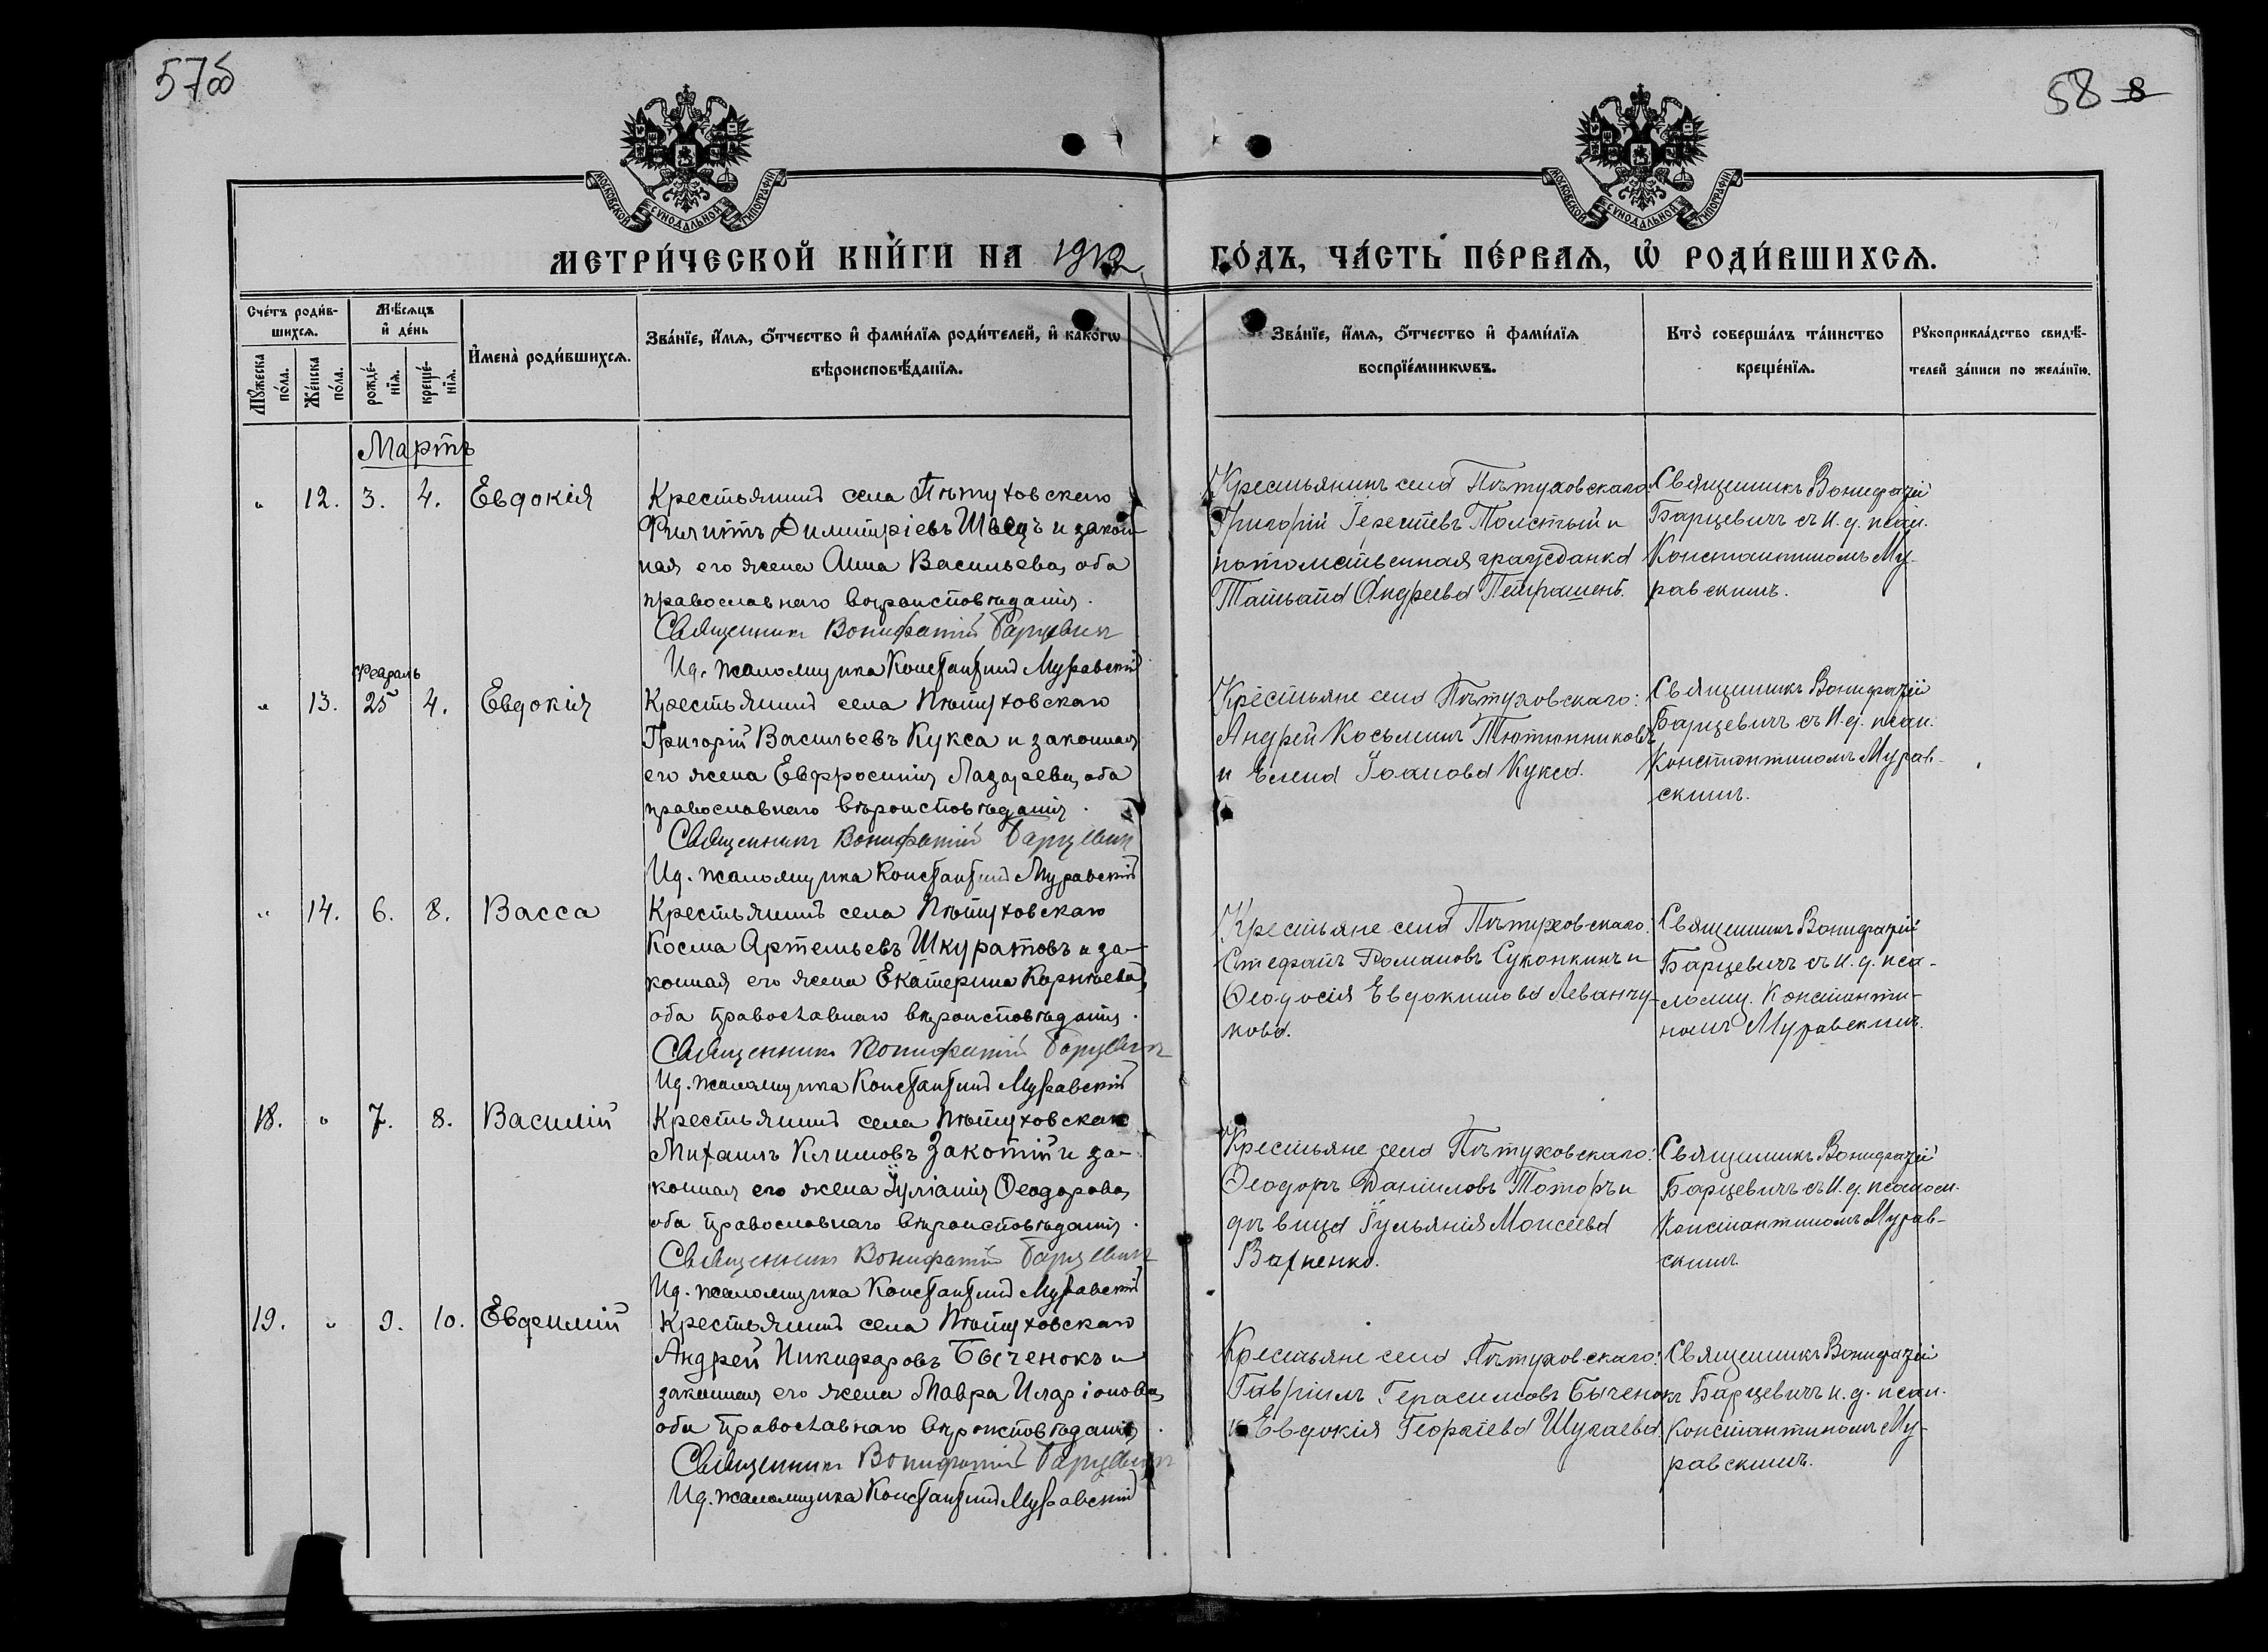 57об
58 8
МОСКОВСКОЙ СѴНОДАЛЬНОЙ ТИПОГРАФІИ
МОСКОВСКОЙ СѴНОДАЛЬНОЙ ТИПОГРАФІИ
МЕТРИ́ЧЕСКОЙ КНИ́ГИ НА 1912
ГО́ДЪ, ЧА́СТЬ ПЕ́РВАѦ, Ѽ РОДИ́ВШИХСѦ.
Сче́тъ роди́в-
шихсѧ.
Мꙋ́жеска
по́ла.
Же́нска
по́ла.
Мѣ́сѧцъ
и҆ де́нь
рожде́-
нїѧ.
креще́-
нїѧ.
И҆мена̀ роди́вшихсѧ.
Зва́нїе, и҆́мѧ, ѻ҆́тчество и҆ фами́лїѧ роди́телей, и҆ како́гѡ
вѣроисповѣ́данїѧ.
Зва́нїе, и҆́мѧ, ѻ҆́тчество и҆ фами́лїѧ
воспрїе́мникѡвъ.
Кто̀ соверша́лъ та́инство
креще́нїѧ.
Рꙋкоприкла́дство свидѣ́-
телей за́писи по жела́нїю.
Мартъ
" 12. 3. 4. Евдокія
Крестьянинъ села Пѣтуховскаго
Филиппъ Димитріевъ Швецъ и закон-
ная его жена Анна Васильева, оба
православнаго вѣроисповѣданія.
Священникъ Вонифатій Барцевичъ
И.д. псаломщика Константинъ Муравскій
Крестьянинъ села Пѣтуховскаго:
Григорій Терентіевъ Толстый и
потомственная гражданка
Татьяна Андреева Петрашень.
Священникъ Вонифатій
Барцевичъ съ И. д. псал.
Константиномъ Му-
равскимъ.
Февраль
" 13. 25 4. Евдокія
Крестьянинъ села Пѣтуховскаго
Григорій Васильевъ Кукса и законная
его жена Евфросинія Лазарева, оба
православнаго вѣроисповѣданія.
Священникъ Вонифатій Барцевичъ
И.д. псаломщика Константинъ Муравскій
Крестьяне села Пѣтуховскаго:
Андрей Косьминъ Тютюнниковъ
и Елена Іоанова Кукса.
Священникъ Вонифатій
Барцевичъ съ И. д. псал.
Константиномъ Мурав-
скимъ.
" 14. 6. 8. Васса
Крестьянинъ села Пѣтуховскаго
Косма Артемьевъ Шкуратовъ и за-
конная его жена Екатерина Корнѣева,
оба православнаго вѣроисповѣданія.
Священникъ Вонифатій Барцевичъ
И.д. псаломщика Константинъ Муравскій
Крестьяне села Пѣтуховскаго:
Стефанъ Романовъ Суконкинъ и
Ѳеодосія Евдокимова Леванчу-
кова.
Священникъ Вонифатій
Барцевичъ съ И. д. пса-
ломщ. Константи-
номъ Муравскимъ.
18. " 7. 8. Василій
Крестьянинъ села Пѣтуховскаго
Михаилъ Климовъ Закотій и за-
конная его жена Іуліанія Ѳеодорова,
оба православнаго вѣроисповѣданія.
Священникъ Вонифатій Барцевичъ
И.д. псаломщика Константинъ Муравскій
Крестьяне села Пѣтуховскаго:
Ѳеодоръ Даніиловъ и
дѣвица Іульянія Моисеева
Священникъ Вонифатій
Барцевичъ съ И. д. псалом.
Константиномъ Мурав-
скимъ
19. " 9. 10. Евфимій
Крестьянинъ села Пѣтуховскаго
Андрей Никифоровъ Быченокъ и
законная его жена Мавра Иларіонова,
оба православнаго вѣроисповѣданія.
Священникъ Вонифатій Барцевичъ
И.д. псаломщика Константинъ Муравскій
Крестьяне села Пѣтуховскаго:
Гавріилъ Герасимовъ Быченокъ
и Евдокія Георгіева Шугаева
Священникъ Вонифатій
Барцевичъ и. д. псал.
Константиномъ Му-
равскимъ.